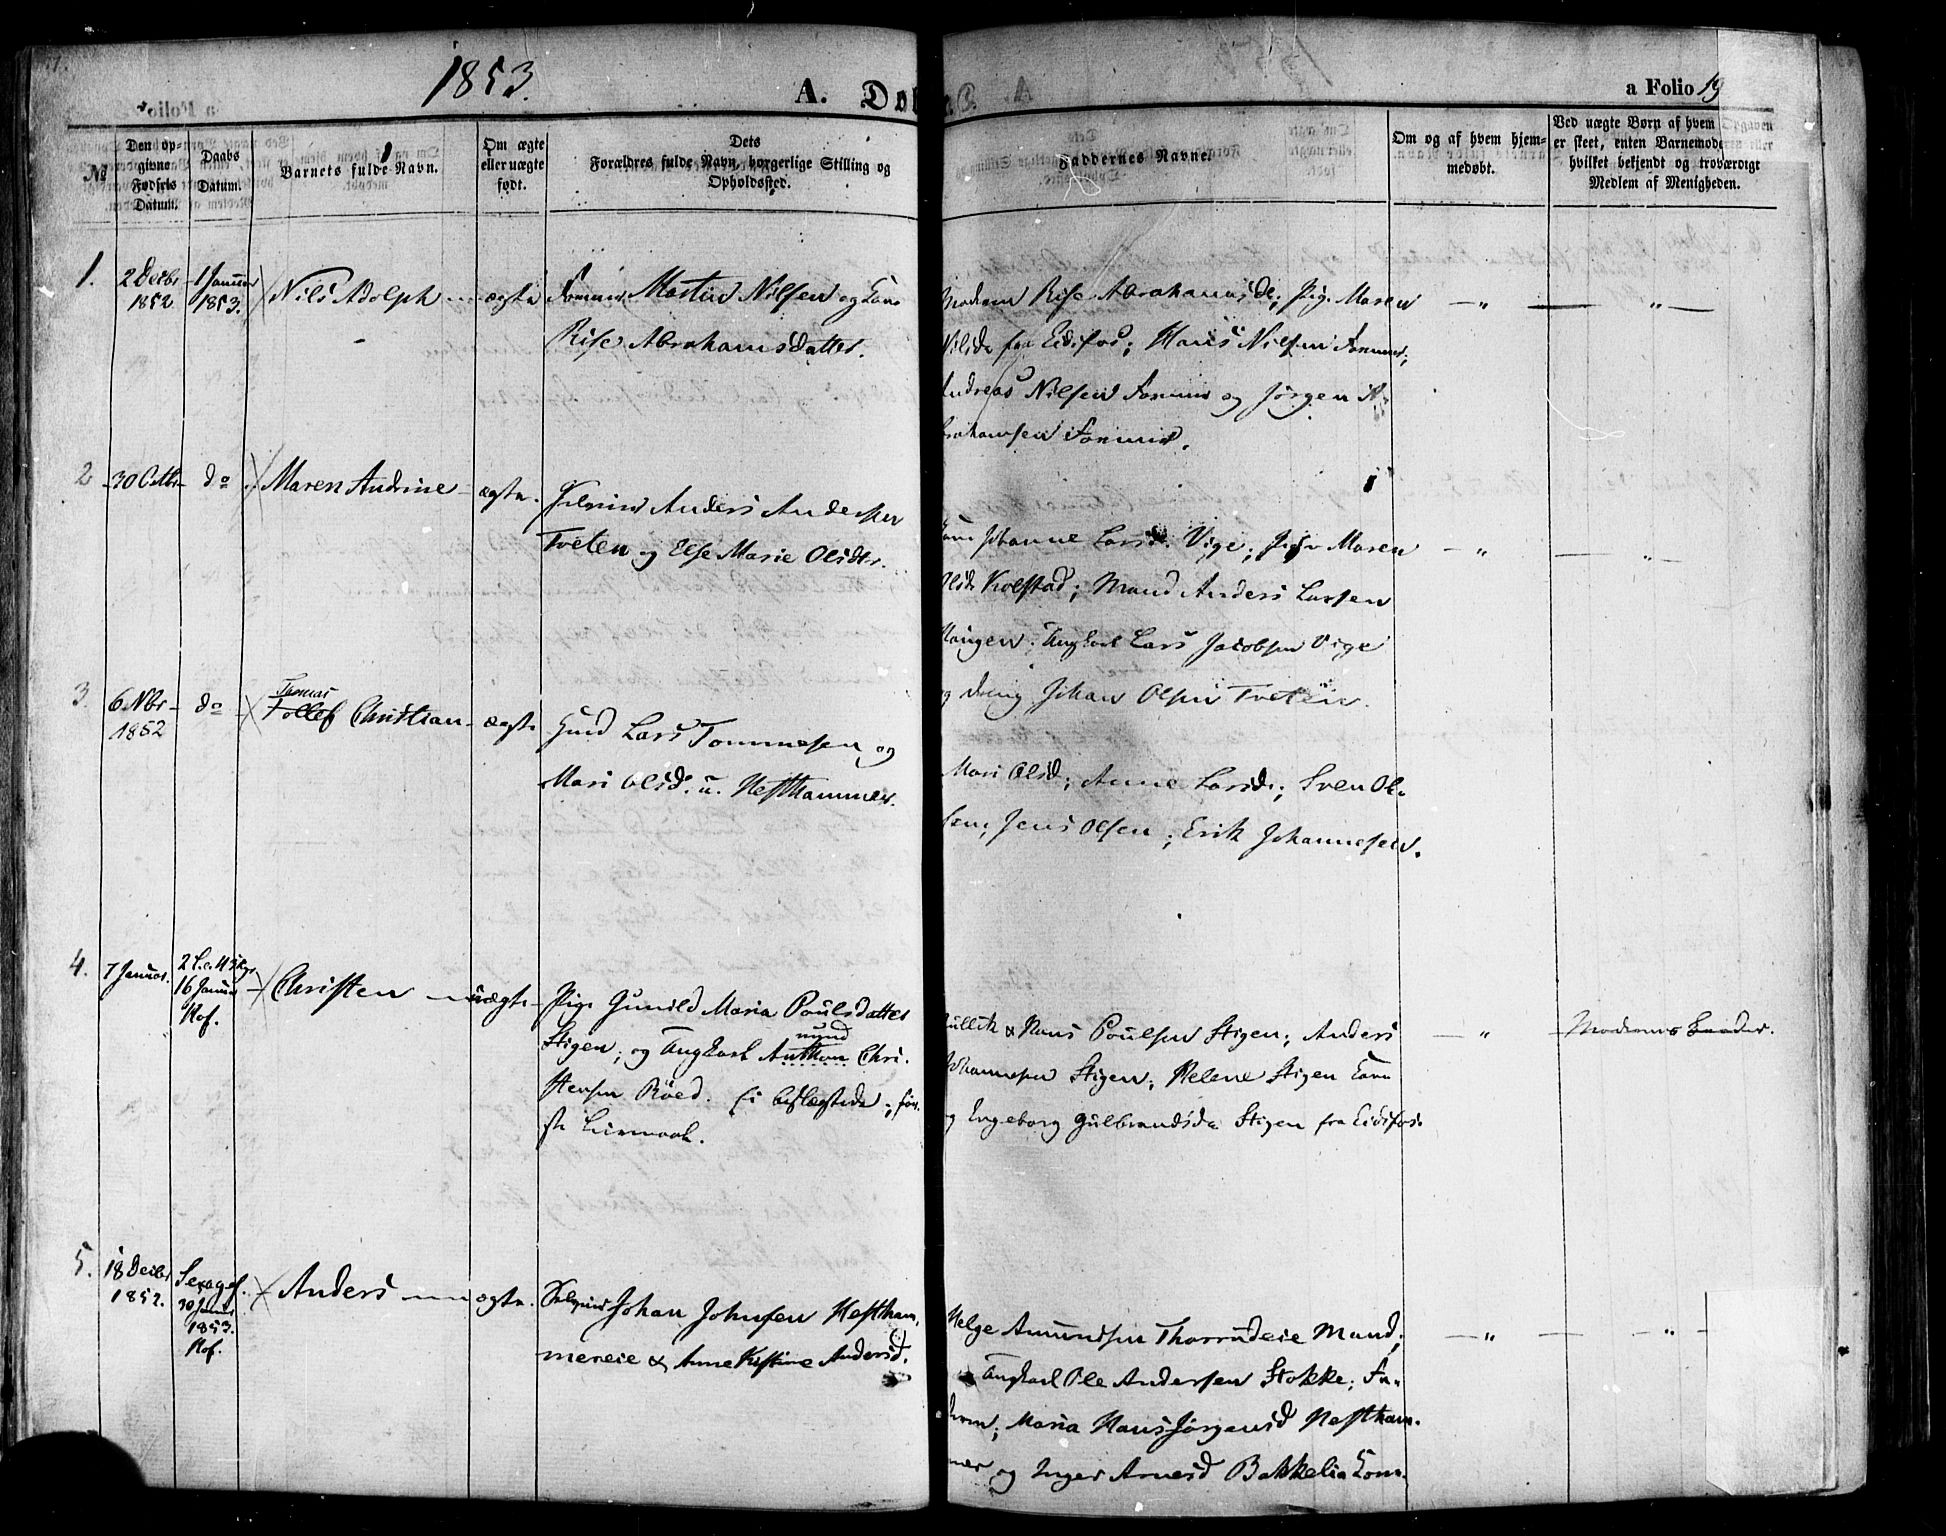 1853.
A. Døb
a Folio 19
No
Den op-
givne
Fødsels
Datum.
Daabs
Datum.
Barnets fulde Navn.
Om ægte
eller uægte
født.
Dets
Forældres fulde Navn, borgerlige Stilling og
Opholdssted.
Faddernes Navne.
Om og af hvem hjem-
medøbt.
Ved uægte Børn af hvem
er skeet, enten Barnemode
hvilket bekjendt og troværdigt
Medlem af Menigheden.
1. 2 Decbr 1 Januar Nils Adolph ægte Martin Nilsen og Kone
1852 1853.
Rise Abrahamsdatter.
Moderen Rise Abrahamsde; Pige Maren
Nilsdr fra Eidsfos; Hans Nilsen
Andreas Nilsen og Jørgen A-
brahamsen
2 30 Octbr do Maren Andrine ægte. Anders Andersen
Tveten og Else Marie Olsdtr.
Kone Johanne Larsd. Vige; Pige Maren
Olsdr Kolstad; Mand Anders Larsen
Haugen; Ungkarl Lars Jacobsen Vige
og dreng Johan Olsen Tveten.
3. 6 Nbr do Tomas
Tollef Christian ægte Lars Tommesen og
1852
Mari Olsd. u. Hesthammer.
Mari Olsd; Anne Larsd; Sven Ol-
sen; Jens Olsen; Erik Johannesen.
4. 7 Januar. 16 Januar Hof. Christen uægte Pige Gunild Maria Poulsdatter
Stigen; og Ungkarl Anthon Chri-
mund
stensen Röed. Ei beslægtede; før-
ste Leiermaal.
Gullik & Hans Poulsen Stigen; Anders
Johannesen Stigen; Helene Stigen Kone
og Engeborg Gulbrandsdr Stigen fra Eidsfos.
Moderens Broder.
5. 18 Decbr Sexages. Anders ægte. Johan Johnsen Hestham-
1852. 30 Januar
1853.
Hof.
mereie & Anne Kistine Andersd.
Helge Amundsen Thorrudeie Mand;
Ungkarl Ole Andersen Stokke; Fa-
deren; Maria HansJørgensd Hestham-
mer og Inger Arnesd Bakkelia Kone.